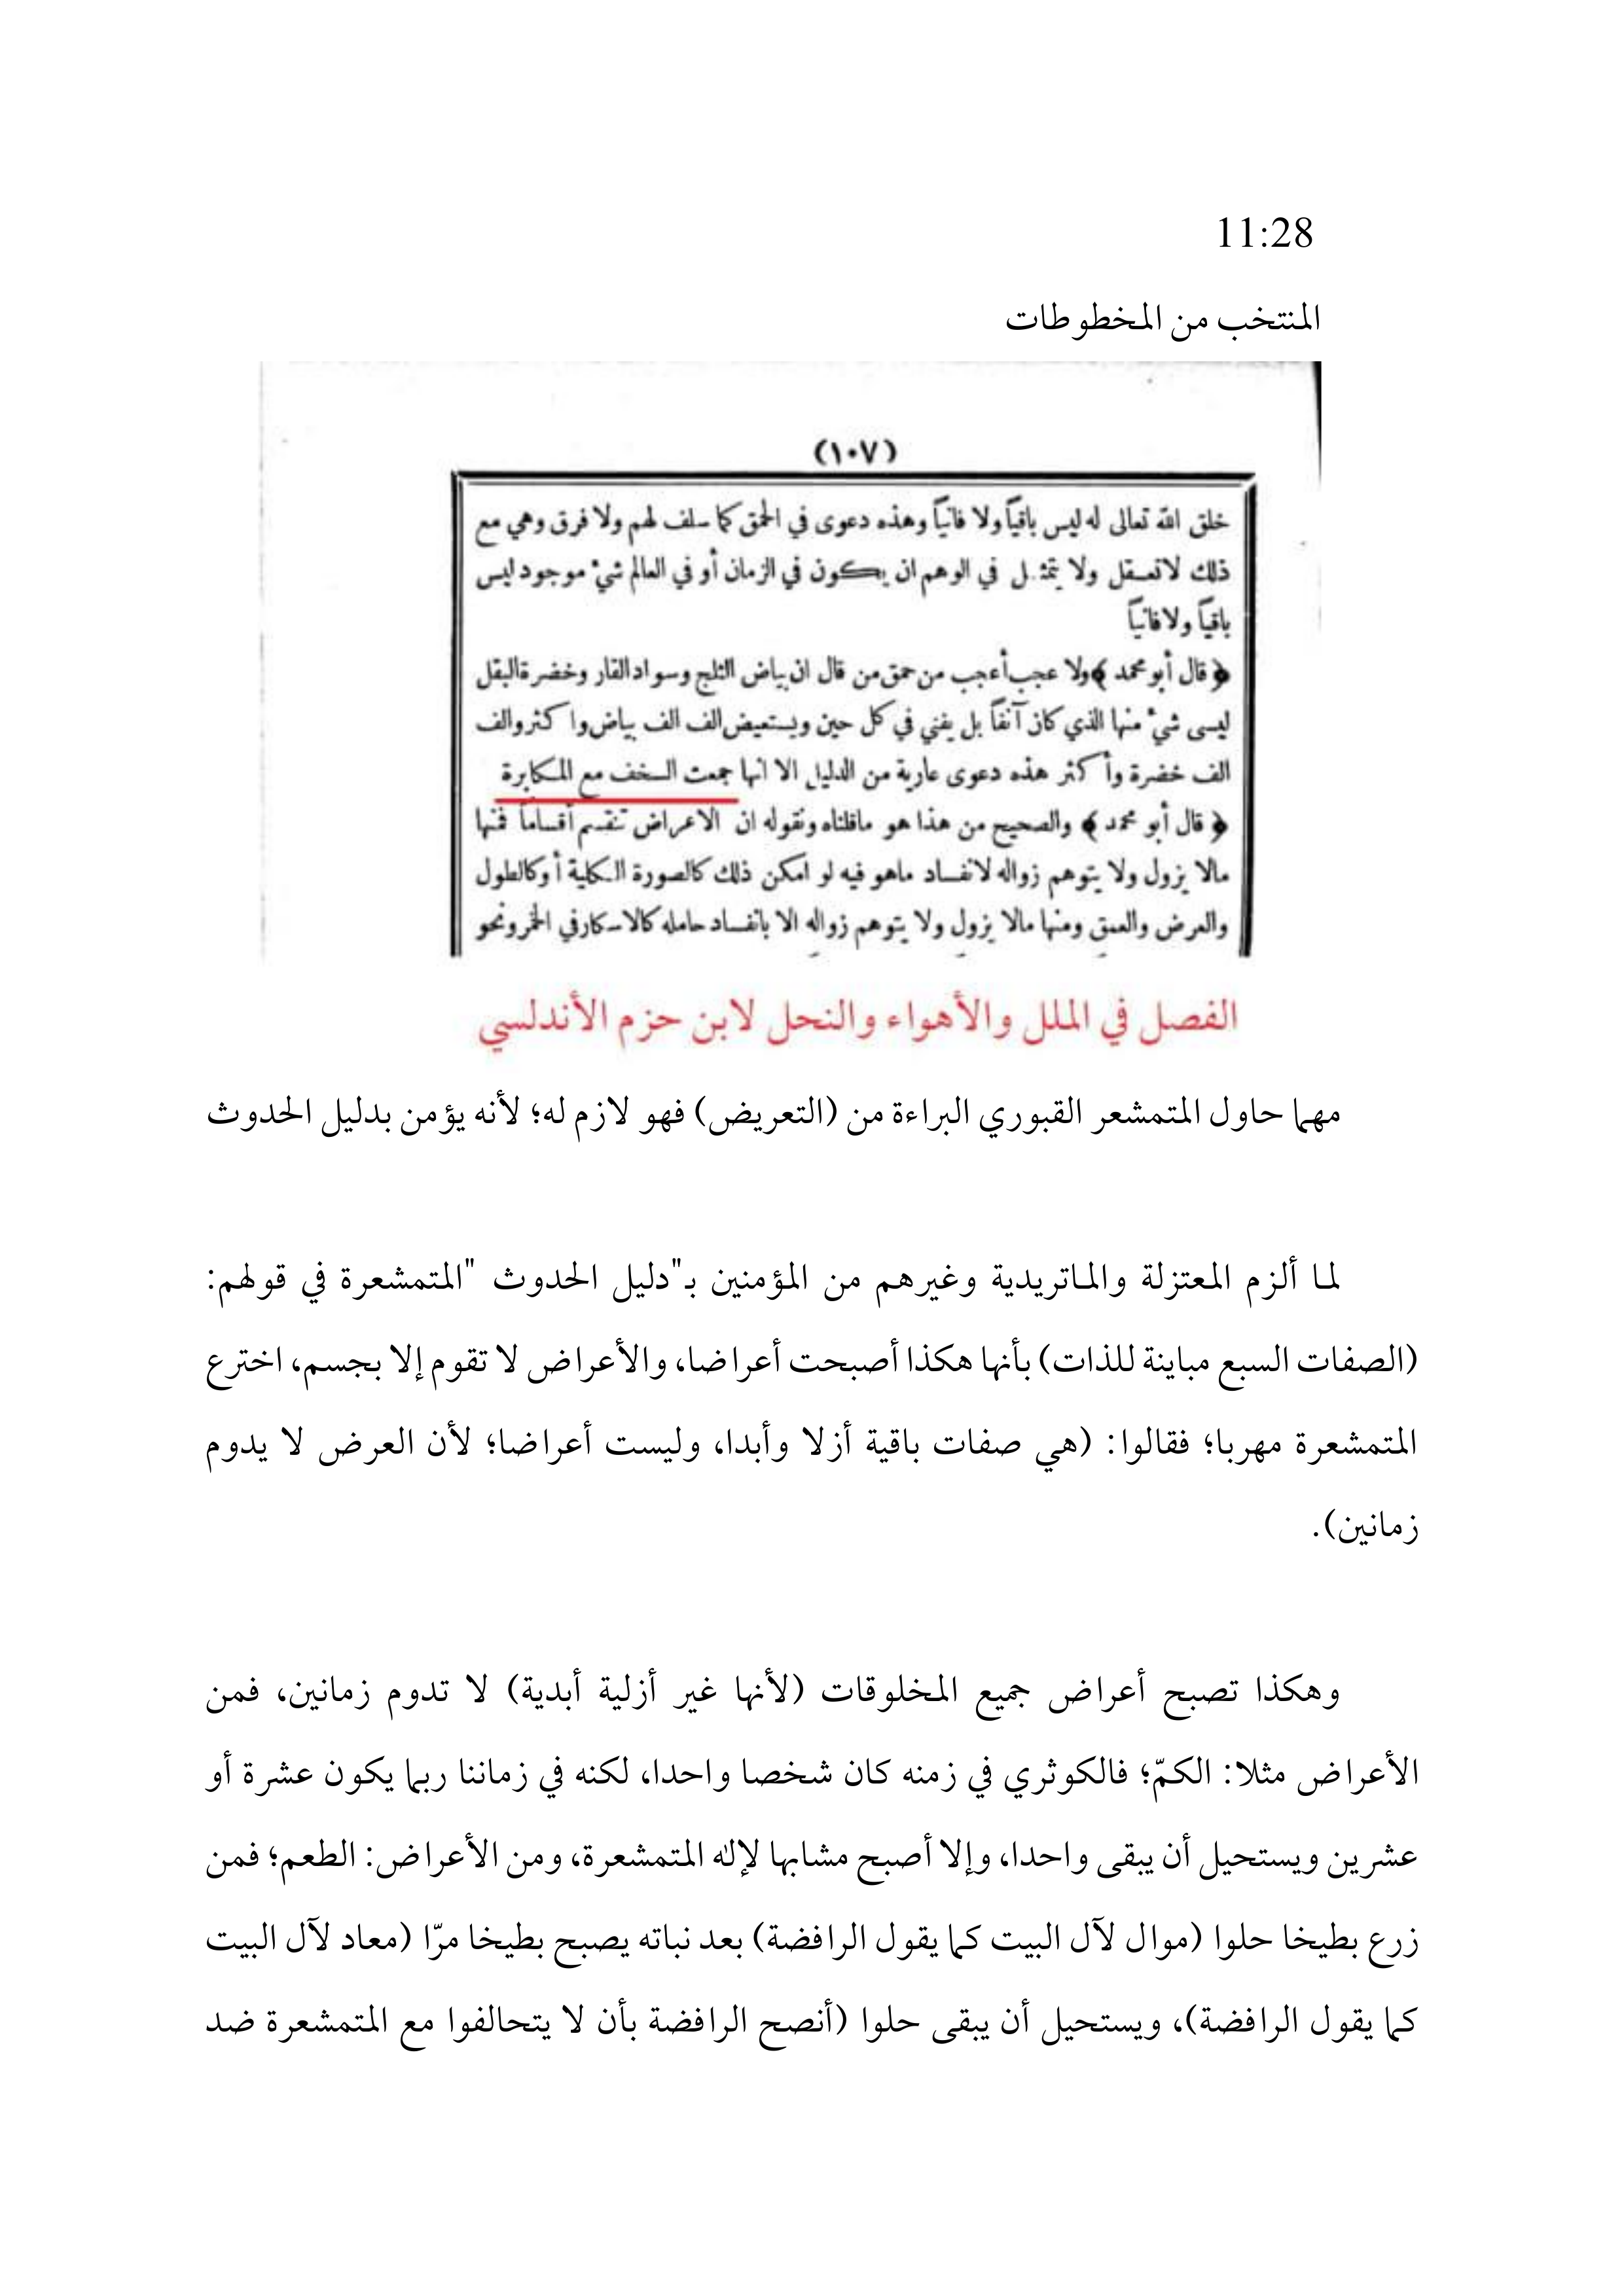 11:28
المنتخب من المخطوطات
(١٠٧)
خلق الله تعالى له ليس باقياً ولا فانياً وهذه دعوى في الحمق كما سلف لهم ولا فرق وهي مع
ذلك لا تعقل ولا يتمثل في الوهم ان يكون في الزمان أو في العالم شيء موجود ليس
باقياً ولا فانياً
﴿ قال أبو محمد ﴾ ولا عجب أعجب من حمق من قال ان بياض الثلج وسواد القار وخضرة البقل
ليسى شيء منها الذي كان آنفاً بل يفني في كل حين ويستعيض الف الف بياض وا كثر والف
الف خضرة وأ كثر هذه دعوى عارية من الدليل الا انها جمعت السخف مع المكابرة
﴿ قال أبو محمد ﴾ والصحيح من هذا هو ماقلناه ونقوله ان الاعراض تنقسم أقساماً فمنها
مالا يزول ولا يتوهم زواله لانفساد ماهو فيه لو امكن ذلك كالصورة الكلية أ وكالطول
والعرض والعمق ومنها مالا يزول ولا يتوهم زواله الا بانفساد حامله كالاسكار في الخمر ونحو
الفصل في الملل والأهواء والنحل لابن حزم الأندلسي
مهما حاول المتمشعر القبوري البراءة من (التعريض) فهو لازم له؛ لأنه يؤمن بدليل الحدوث
لما ألزم المعتزلة والماتريدية وغيرهم من المؤمنين بـ"دليل الحدوث "المتمشعرة في قولهم:
(الصفات السبع مباينة للذات) بأنها هكذا أصبحت أعراضا، والأعراض لا تقوم إلا بجسم، اخترع
المتمشعرة مهربا؛ فقالوا: (هي صفات باقية أزلا وأبدا، وليست أعراضا؛ لأن العرض لا يدوم
زمانين).
وهكذا تصبح أعراض جميع المخلوقات (لأنها غير أزلية أبدية) لا تدوم زمانين، فمن
الأعراض مثلا: الكمّ؛ فالكوثري في زمنه كان شخصا واحدا، لكنه في زماننا ربما يكون عشرة أو
عشرين ويستحيل أن يبقى واحدا، وإلا أصبح مشابها لإله المتمشعرة، ومن الأعراض: الطعم؛ فمن
زرع بطيخا حلوا (موال لآل البيت كما يقول الرافضة) بعد نباته يصبح بطيخا مرّا (معاد لآل البيت
كما يقول الرافضة)، ويستحيل أن يبقى حلوا (أنصح الرافضة بأن لا يتحالفوا مع المتمشعرة ضد